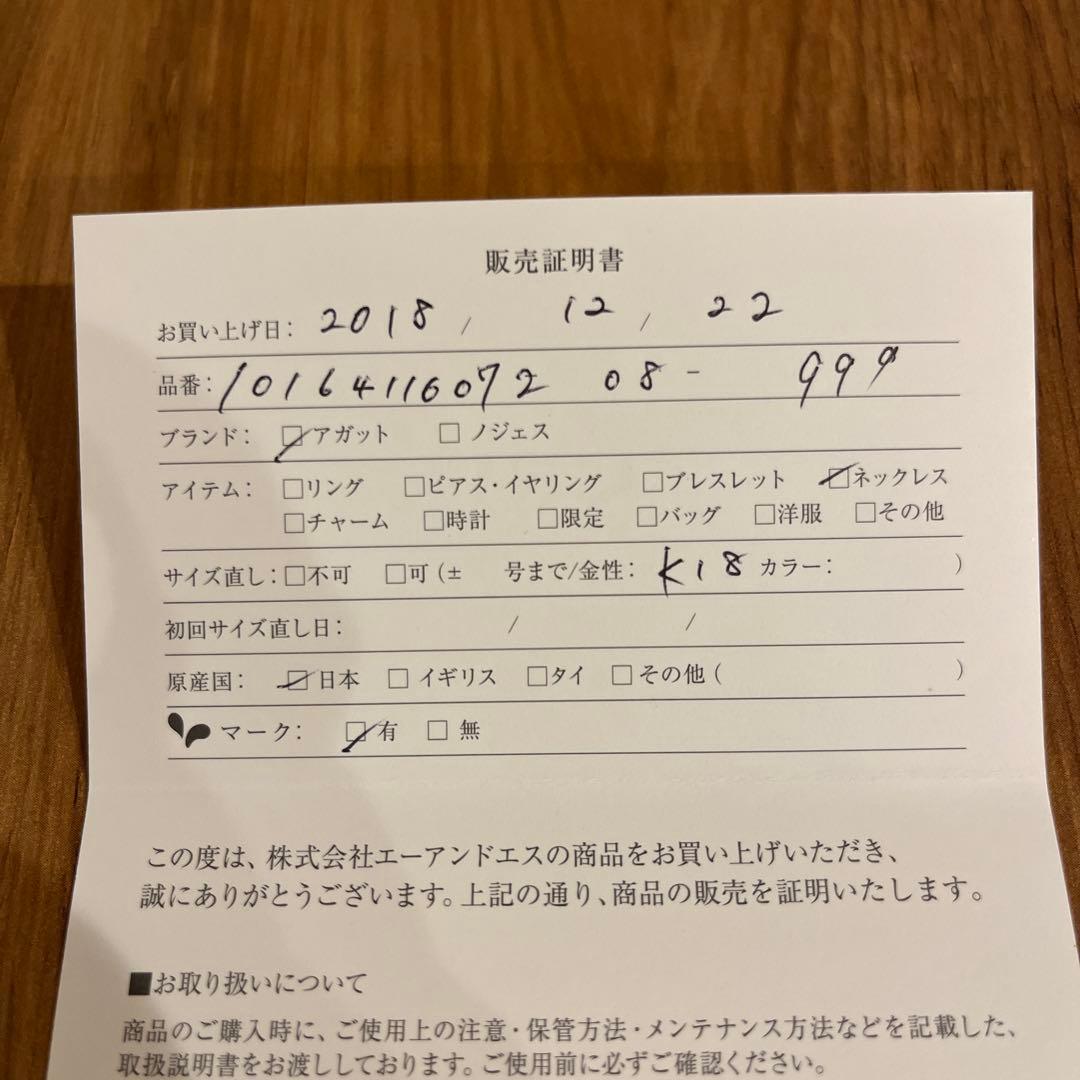 販売証明書
お買い上げ日： 2018 / 12 / 22
品番： 10164116072 08 - 999
ブランド： ☑アガット □ノジェス
アイテム： □リング □ピアス・イヤリング □ブレスレット ☑ネックレス
□チャーム □時計 □限定 □バッグ □洋服 □その他
サイズ直し：□不可 □可（± 号まで/金性： K18 カラー： ）
初回サイズ直し日： / /
原産国： ☑日本 □イギリス □タイ □その他（ ）
マーク： ☑有 □無
この度は、株式会社エーアンドエスの商品をお買い上げいただき、
誠にありがとうございます。上記の通り、商品の販売を証明いたします。
■お取り扱いについて
商品のご購入時に、ご使用上の注意・保管方法・メンテナンス方法などを記載した、
取扱説明書をお渡ししております。ご使用前に必ずご確認ください。